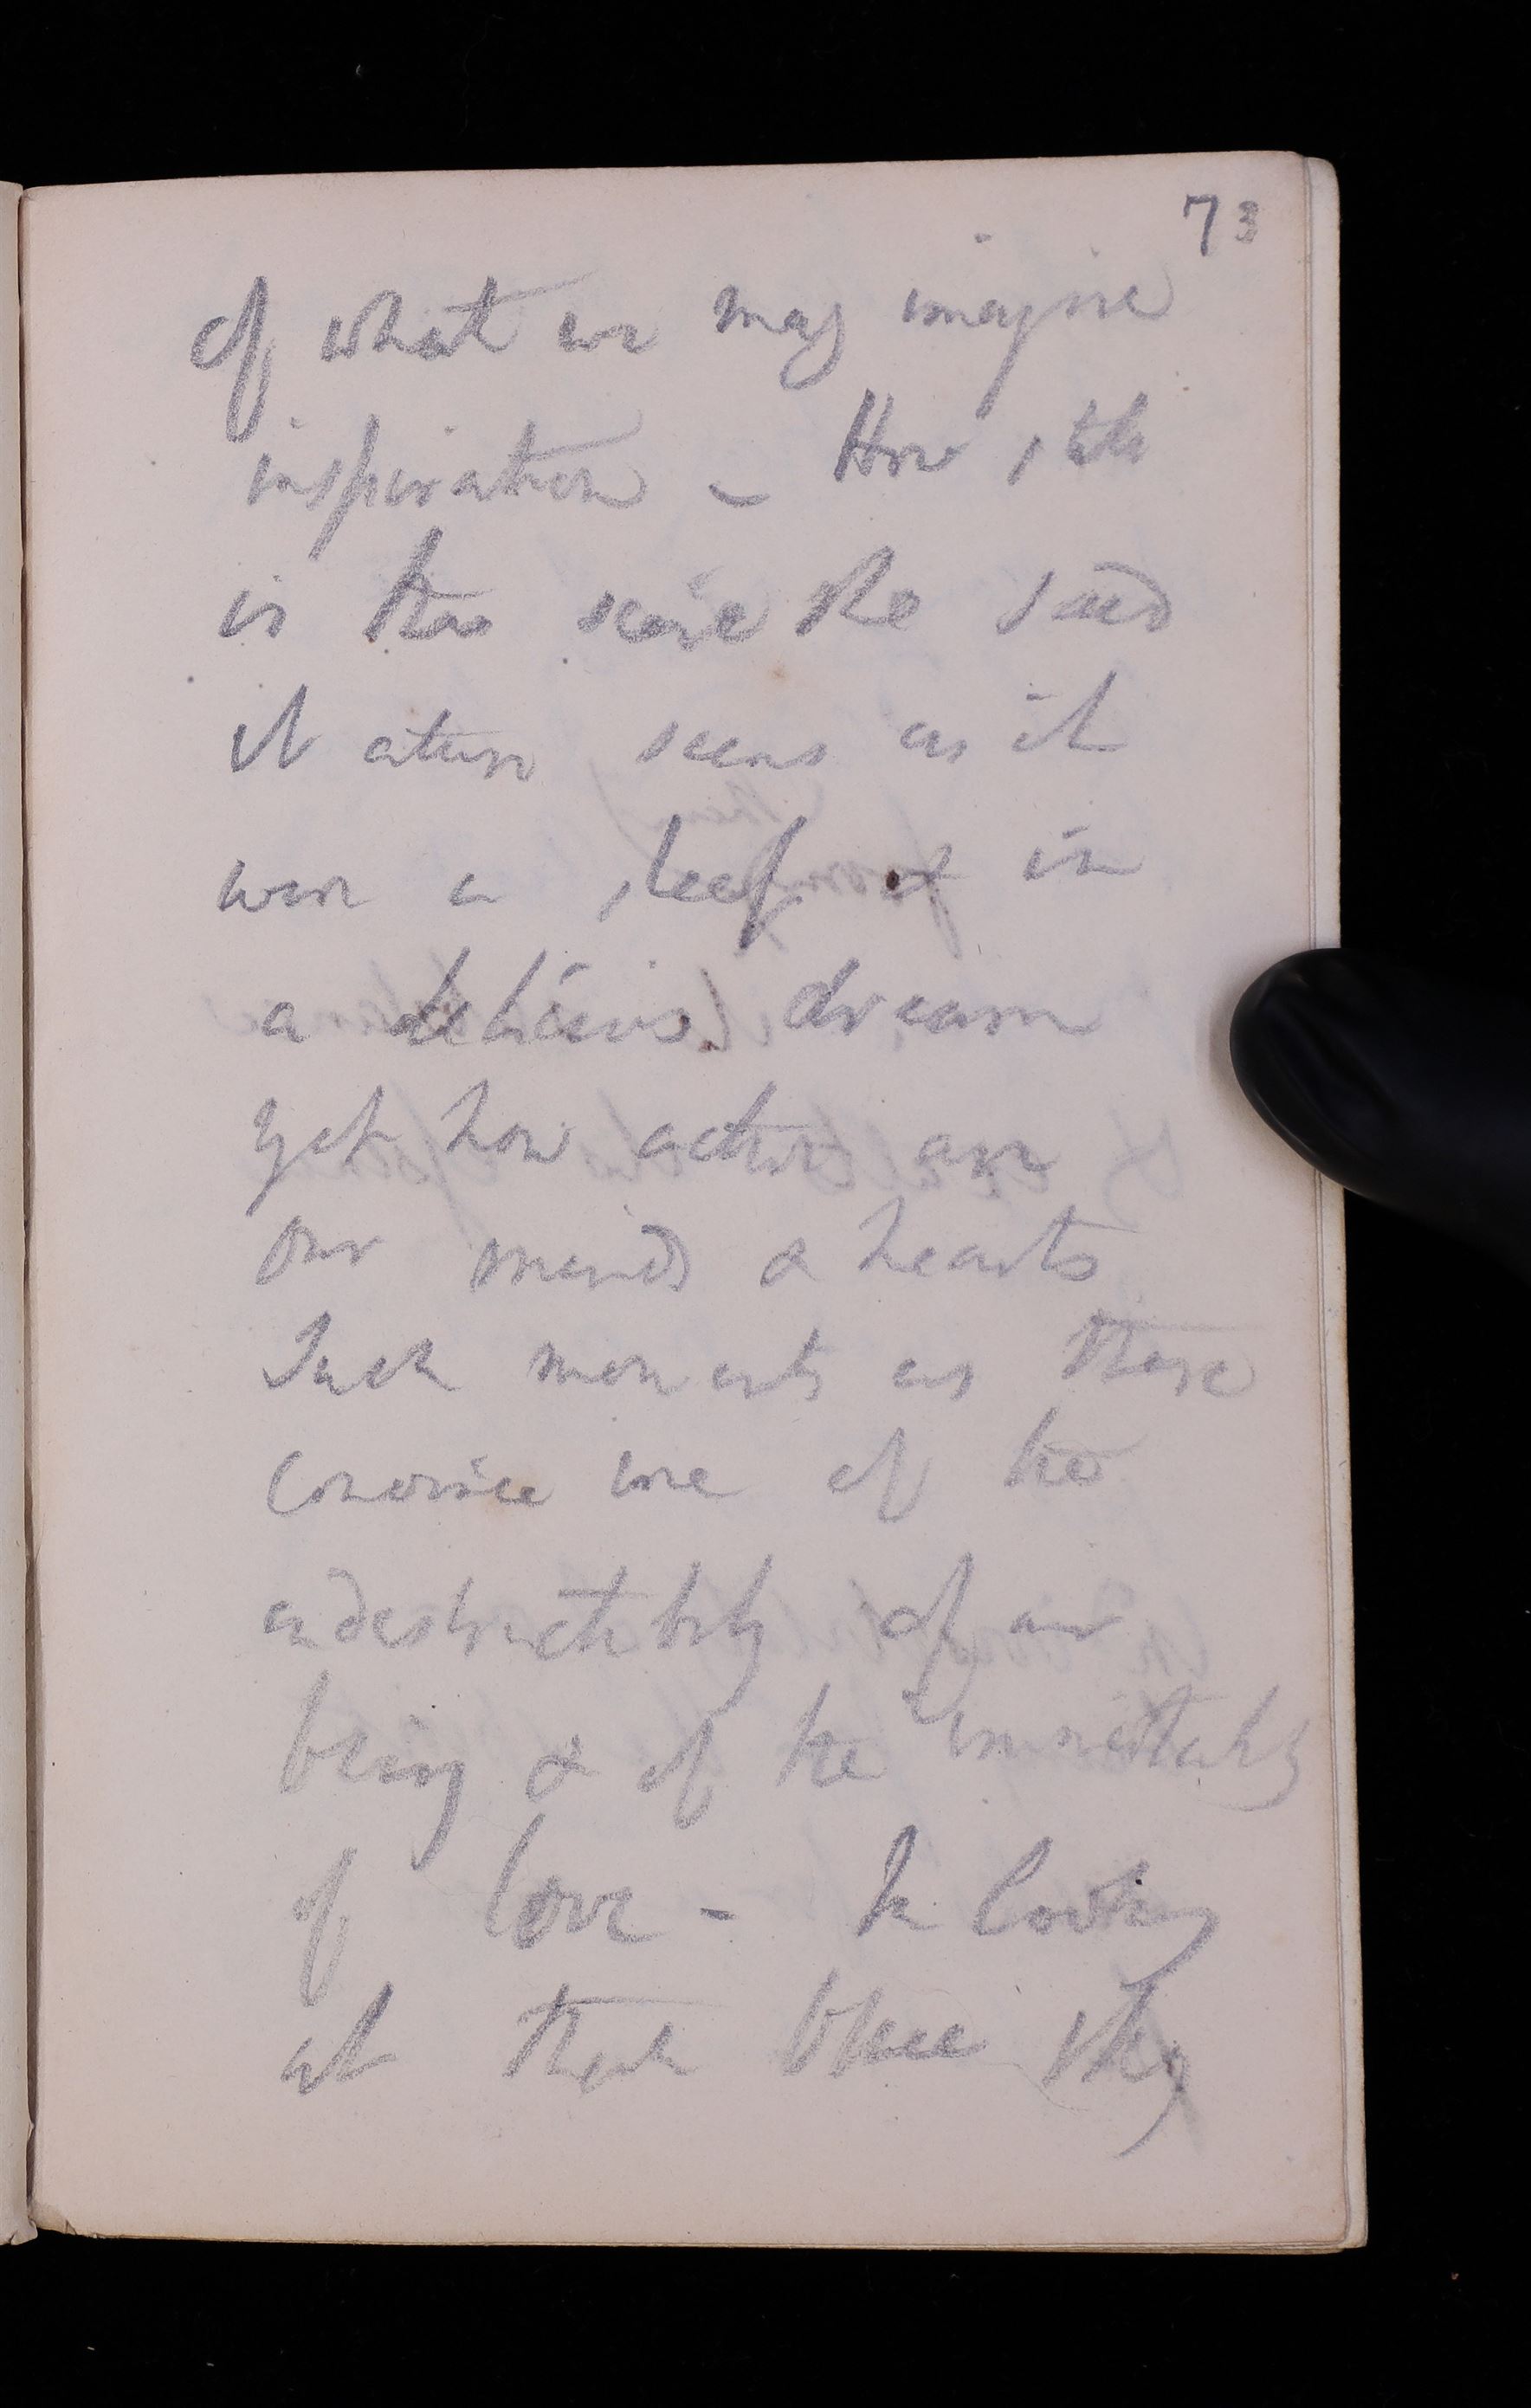 73
of what we may imagine
inspiration – How still
is this scene she said
it almost seems as if it
were asleep & in
a delicious dream
yet how active are
our minds & hearts
Such moments as these
convince one of the
indestructibility of our
being & of the immutability
of love – In looking
at that blue sky